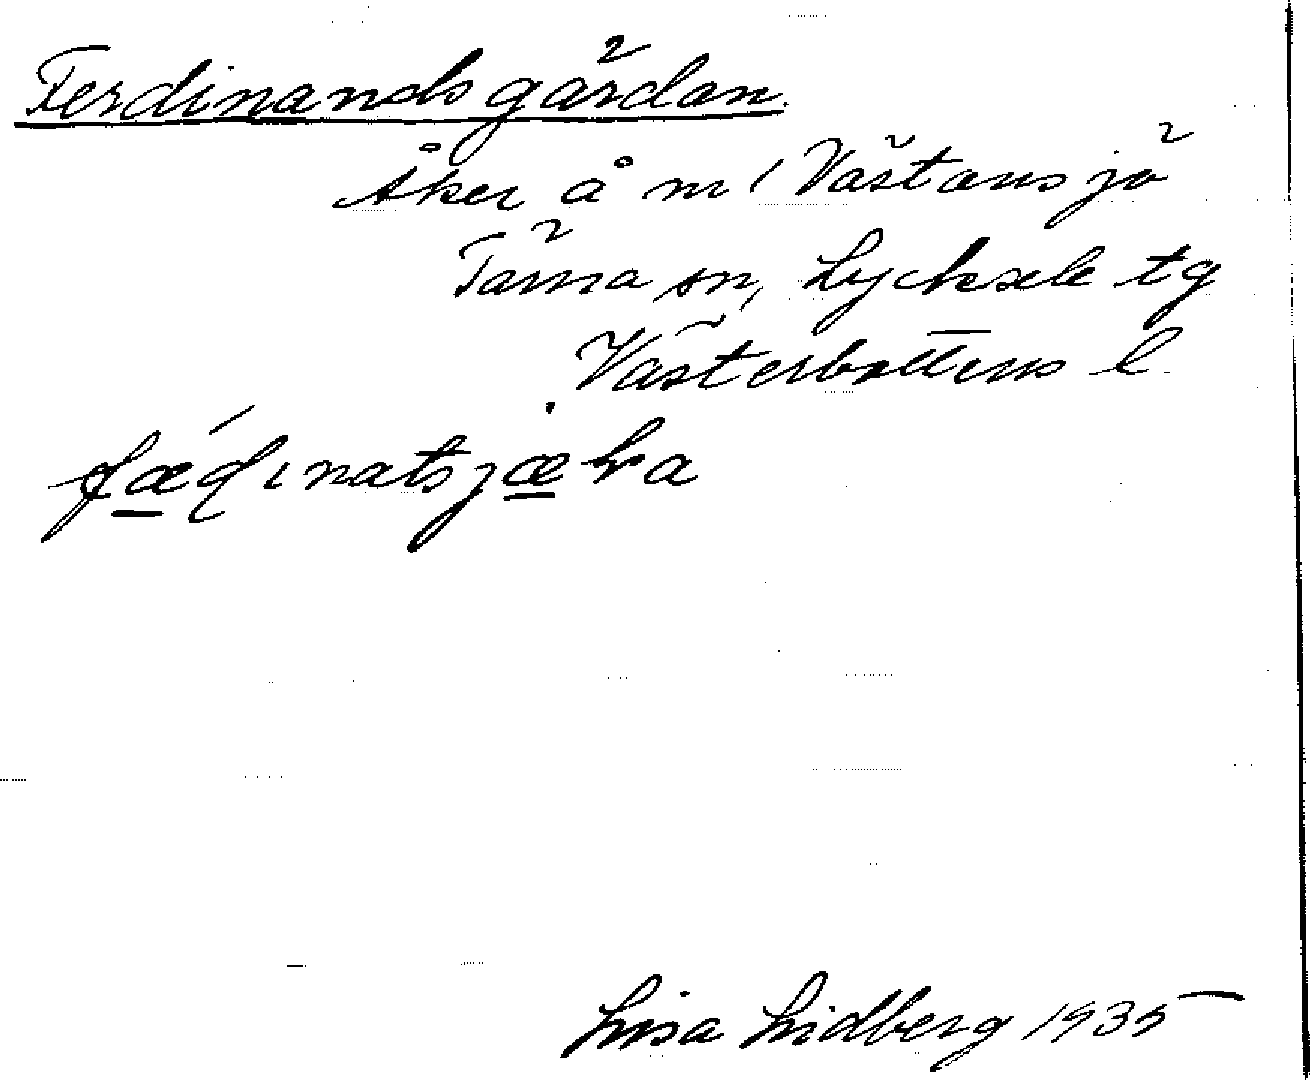 Ferdinandsgärdan.
Åker å nr 1 Västansjö
Tärna sn, Lycksele tg
Västerbottens l.
Lisa Lidberg 1935